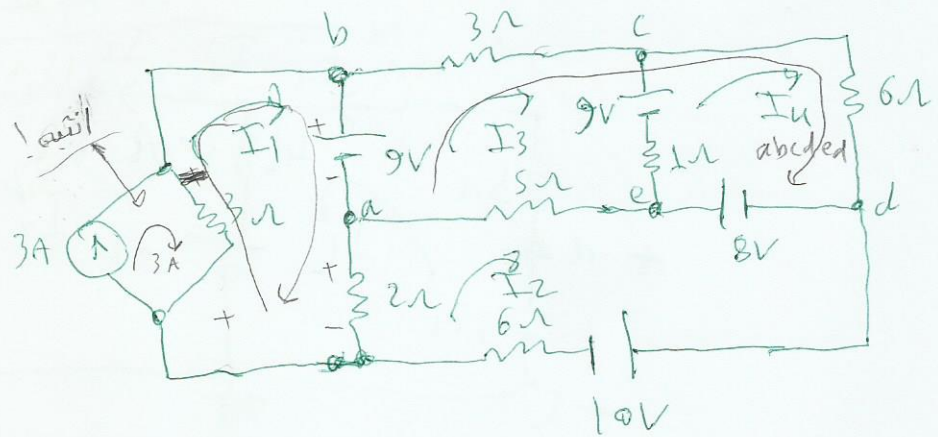 3Ω
b
c
انتبه!
I1
+
9V
-
I3
9V
I4
6Ω
1Ω
abcdea
3Ω
a
5Ω
e
d
3A
3A
8V
+
+
2Ω
-
I2
6Ω
10V